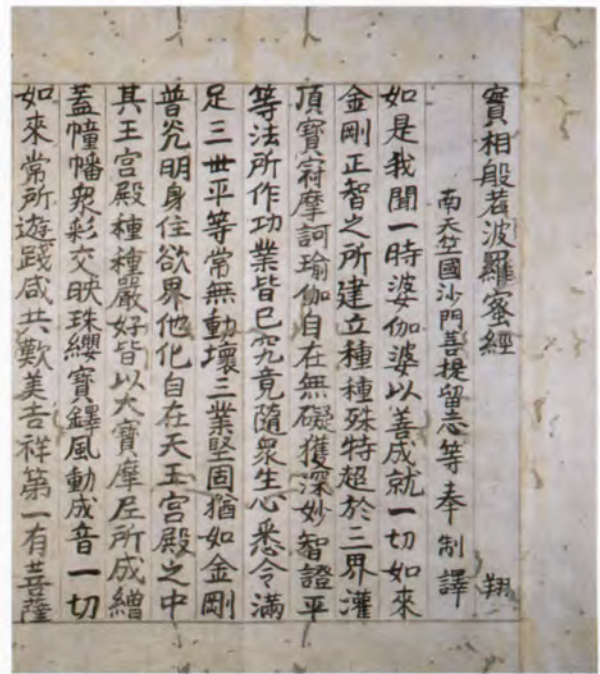 實相般若波羅蜜經 翔
南天竺國沙門菩提留志等奉制譯
如是我聞一時婆伽婆以善成就一切如來
金剛正智之所建立種種殊特超於三界灌
頂寶冠摩訶瑜伽自在無礙獲深妙智證平
等法所作功業皆已究竟隨衆生心悉令滿
足三世平等常無動壞三業堅固猶如金剛
普光明身住欲界他化自在天王宮殿之中
其王宮殿種種嚴好皆以大寶摩尼所成繒
蓋幢幡衆彩交映珠纓寶鐸風動成音一切
如來常所遊踐咸共歎美吉祥第一有菩薩